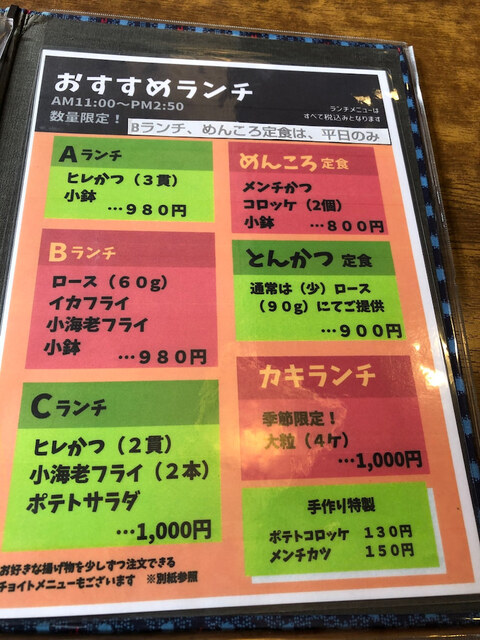 おすすめランチ
AM11:00～PM2:50
数量限定！
ランチメニューは
すべて税込みとなります
Bランチ、めんころ定食は、平日のみ
Aランチ
ヒレかつ（３貫）
小鉢
…９８０円
Bランチ
ロース（６０g）
イカフライ
小海老フライ
小鉢
…９８０円
Cランチ
ヒレかつ（２貫）
小海老フライ（２本）
ポテトサラダ
…1,000円
お好きな揚げ物を少しずつ注文できる
チョイトメニューもございます　※別紙参照
めんころ 定食
メンチかつ
コロッケ（2個）
小鉢　…８００円
とんかつ 定食
通常は（少）ロース
（９０g）にてご提供
…９００円
カキランチ
季節限定！
大粒（４ケ）
…1,000円
手作り特製
ポテトコロッケ　１３０円
メンチカツ　１５０円